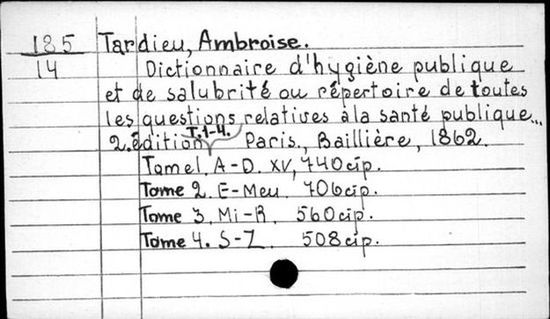 185 Tardieu, Ambroise.
14 Dictionnaire d'hygiène publique
et de salubrité ou répertoire de toutes
les questions relatives à la santé publique...
T.1-4.
2.édition Paris., Baillière, 1862.
Tome 1, A-D. XV, 740 cip.
Tome 2. E-Meu. 706 cip.
Tome 3. Mi-R. 560 cip.
Tome 4. S-Z. 508 cip.